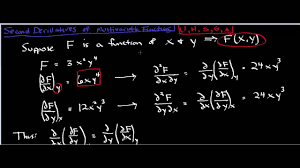 Second Derivatives of Multivariable Functions
Suppose F is a function of x & y ⟹ F(x,y)
F = 3x²y⁴
(∂F/∂x)_y = 6xy⁴ → ∂²F/∂x∂y = ∂/∂y(∂F/∂x)_y = 24xy³
(∂F/∂y)_x = 12x²y³ → ∂²F/∂y∂x = ∂/∂x(∂F/∂y)_x = 24xy³
Thus: ∂/∂x(∂F/∂y)_x = ∂/∂y(∂F/∂x)_y